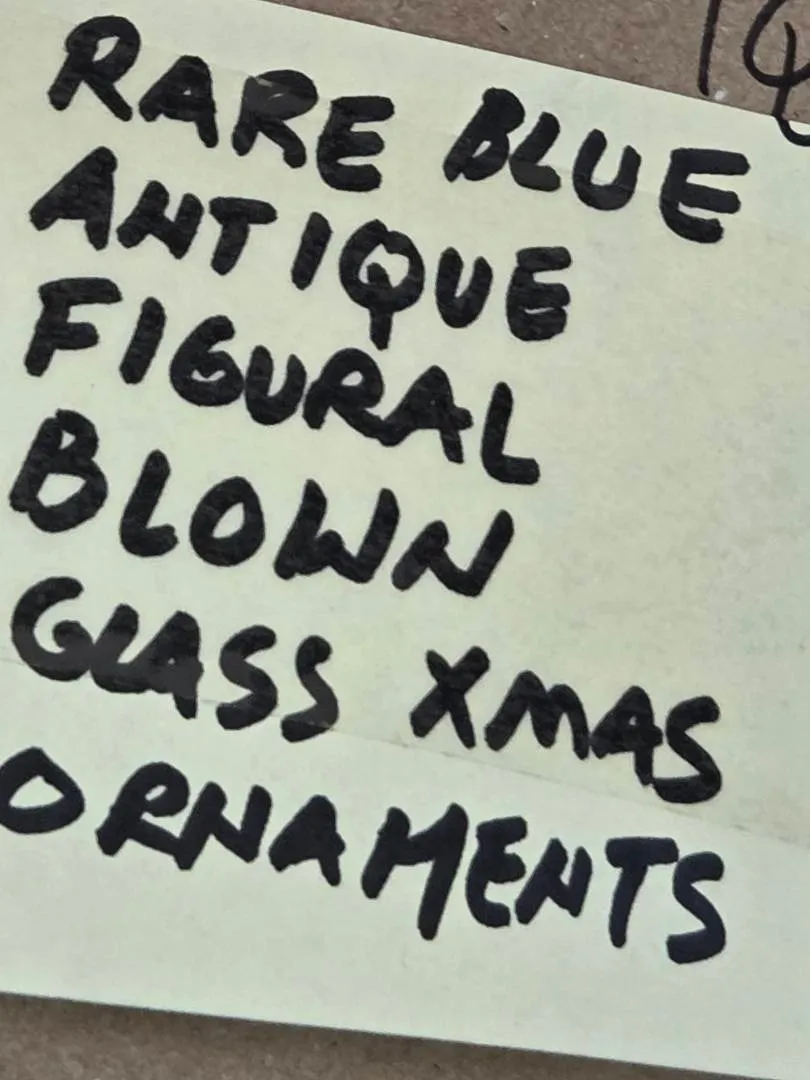 RARE BLUE
ANTIQUE
FIGURAL
BLOWN
GLASS XMAS
ORNAMENTS